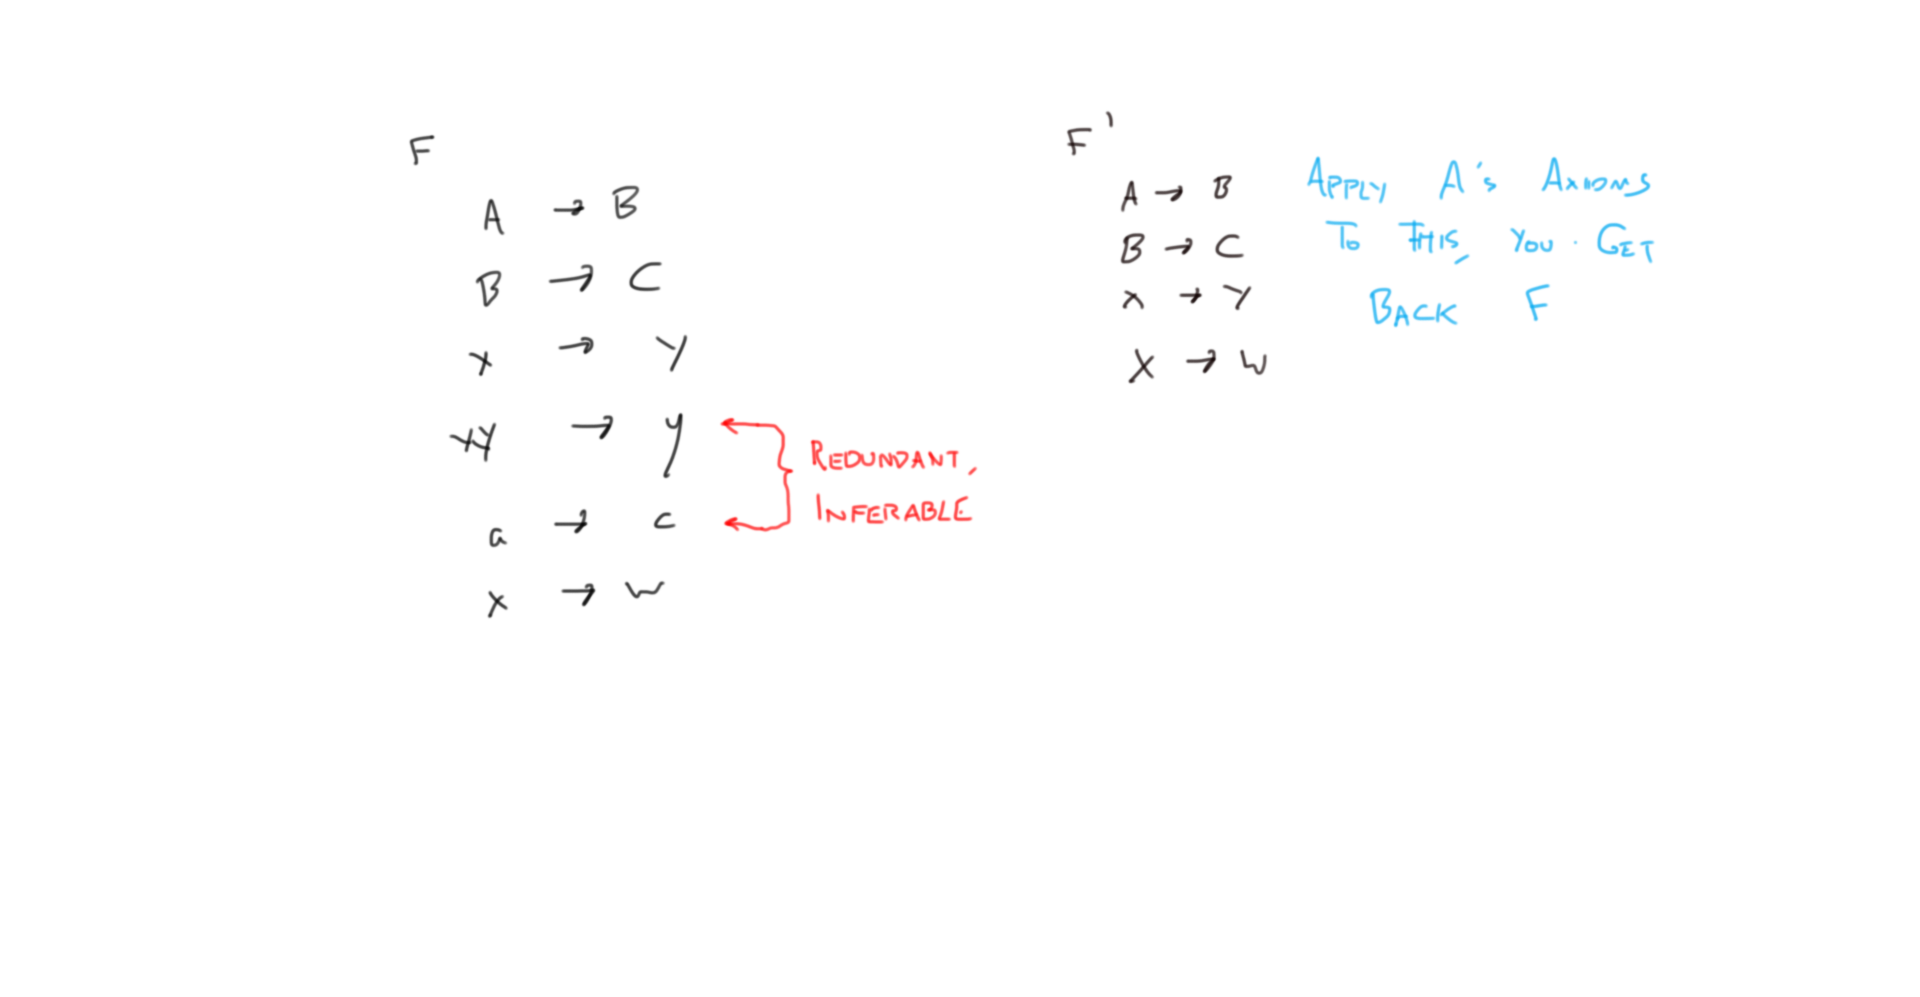 F
A → B
B → C
x → Y
XY → y
a → c
x → w
REDUNDANT,
INFERABLE
F'
A → B
B → C
x → Y
X → W
APPLY A's AXIOMS
TO THIS, YOU GET
BACK F